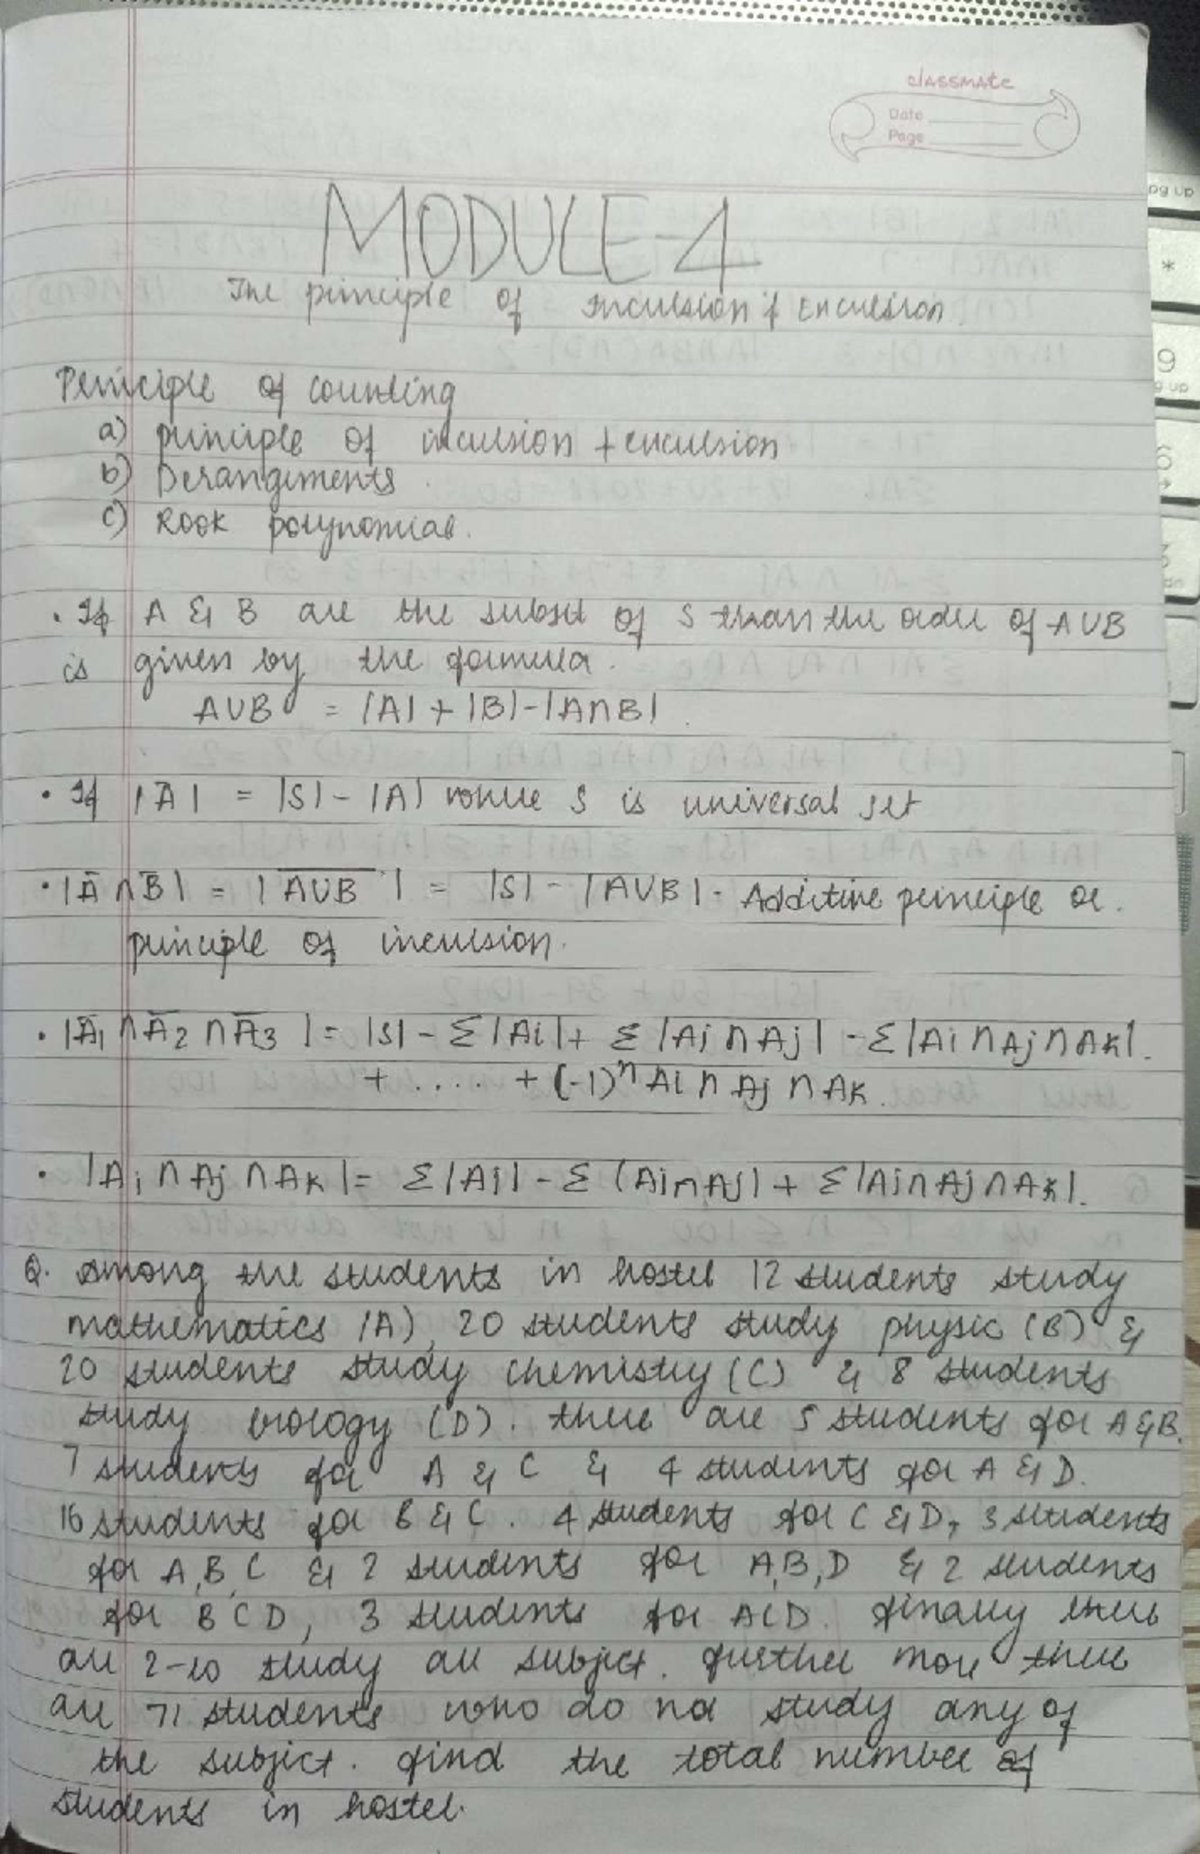 classmate
Date
Page
pg up
*
9
g up
6
MODULE-4
The principle of Inculsion & Exculsion.
Principle of counting
a) principle of inculsion + exculsion
b) Derangements.
c) Rook polynomial.
• If A & B are the subset of S than the order of AUB
is given by the formula.
AUB = |A| + |B| - |A∩B|.
• If |Ā| = |S| - |A| where S is universal set
• |Ā∩B̄| = |A̅U̅B̅| = |S| - |AUB| - Additive principle or
principle of inculsion.
• |Ā1 ∩ Ā2 ∩ Ā3| = |S| - Σ|Ai| + Σ|Ai ∩ Aj| - Σ|Ai ∩ Aj ∩ AK|.
+ .... + (-1)ⁿ Ai ∩ Aj ∩ AK.
• |Ai ∩ Aj ∩ AK| = Σ|Ai| - Σ(Ai∩Aj) + Σ|Ai∩Aj∩AK|.
Q. Among the students in hostel 12 students study
mathematics (A), 20 students study physic (B) &
20 students study chemistry (C) & 8 students
study biology (D). there are 5 students for A & B.
7 students for A & C & 4 students for A & D.
16 students for B & C. 4 students for C & D, 3 students
for A, B, C & 2 students for A,B,D & 2 students
for B C D, 3 students for ACD. finally there
are 2-20 study all subject. further more there
are 71 students who do not study any of
the subject. find the total number of
students in hostel.